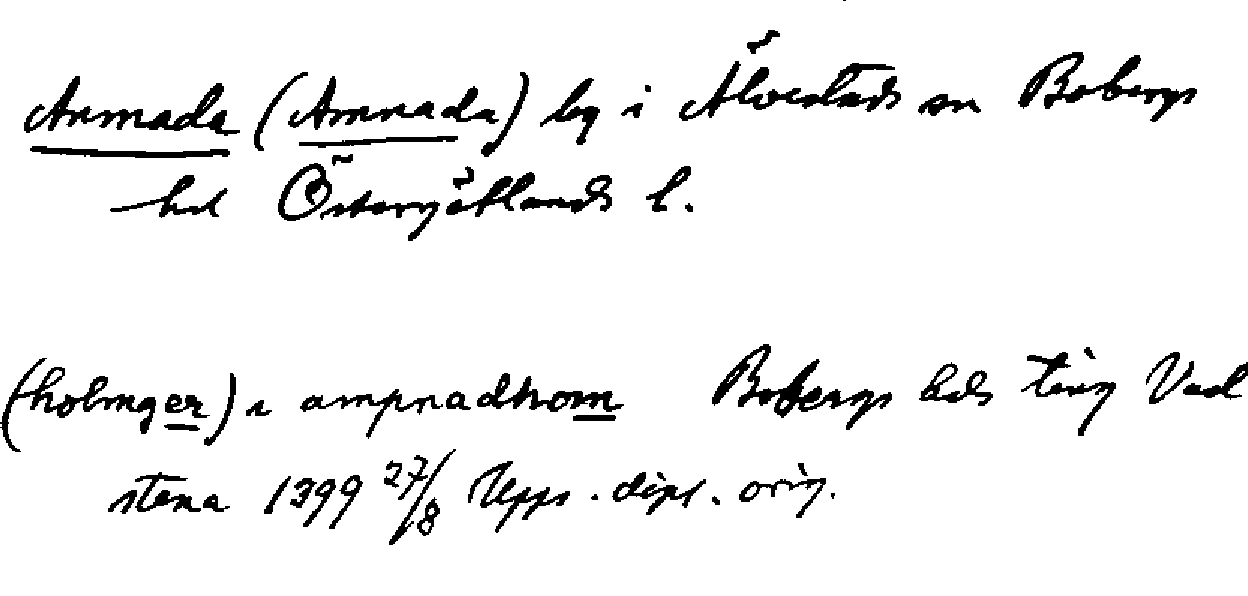 Anmada (Amnada) by i Älvestads sn Bobergs
hd Östergötlands l.
(holmger) i ampnadhom Bobergs hds ting Vad
stena 1399 27/8 Upps. dipl. orig.